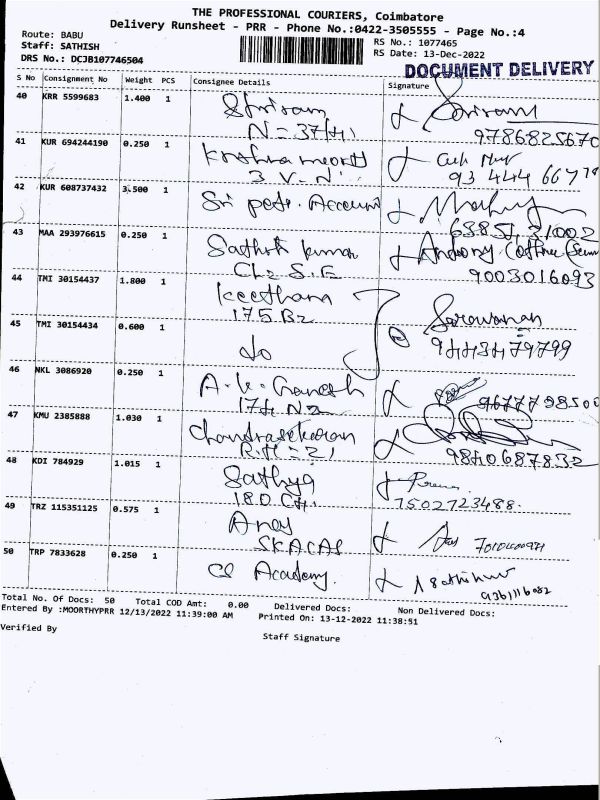 THE PROFESSIONAL COURIERS, Coimbatore
Delivery Runsheet - PRR - Phone No.:0422-3505555 - Page No.:4
Route: BABU
Staff: SATHISH
DRS No.: DCJB107746504
RS No.: 1077465
RS Date: 13-Dec-2022
DOCUMENT DELIVERY
S No Consignment No Weight PCS Consignee Details Signature
40 KRR 5599683 1.400 1 Shriram
N=37/41 9786825670
41 KUR 694244190 0.250 1
3 V.N
42 KUR 608737432 3.500 1 Sri Account
43 MAA 293976615 0.250 1 Sathish kumar Antoony
9003016093
44 TMI 30154437 1.800 1 Keethana
175.B2 Saravanan
45 TMI 30154434 0.600 1 do 9443479799
46 NKL 3086920 0.250 1 A.K. Ganesh
174 N2
47 KMU 2385888 1.030 1 Chandrasekaran
9840687832
48 KDI 784929 1.015 1 Sathya
180 7502723488.
49 TRZ 115351125 0.575 1
SKACAS
50 TRP 7833628 0.250 1 CS Academy.
9361116082
Total No. Of Docs: 50 Total COD Amt: 0.00 Delivered Docs: Non Delivered Docs:
Entered By :MOORTHYPRR 12/13/2022 11:39:00 AM Printed On: 13-12-2022 11:38:51
Verified By
Staff Signature